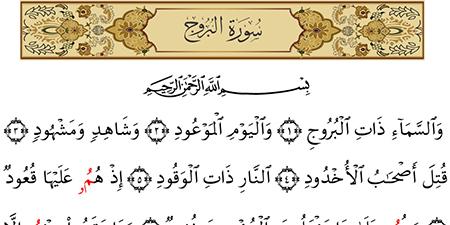 سُورَةُ البُرُوج
بِسْمِ ٱللَّهِ ٱلرَّحْمَٰنِ ٱلرَّحِيمِ
وَٱلسَّمَآءِ ذَاتِ ٱلْبُرُوجِ ١ وَٱلْيَوْمِ ٱلْمَوْعُودِ ٢ وَشَاهِدٍ وَمَشْهُودٍ ٣
قُتِلَ أَصْحَٰبُ ٱلْأُخْدُودِ ٤ ٱلنَّارِ ذَاتِ ٱلْوَقُودِ ٥ إِذْ هُمُۥ عَلَيْهَا قُعُودٌ